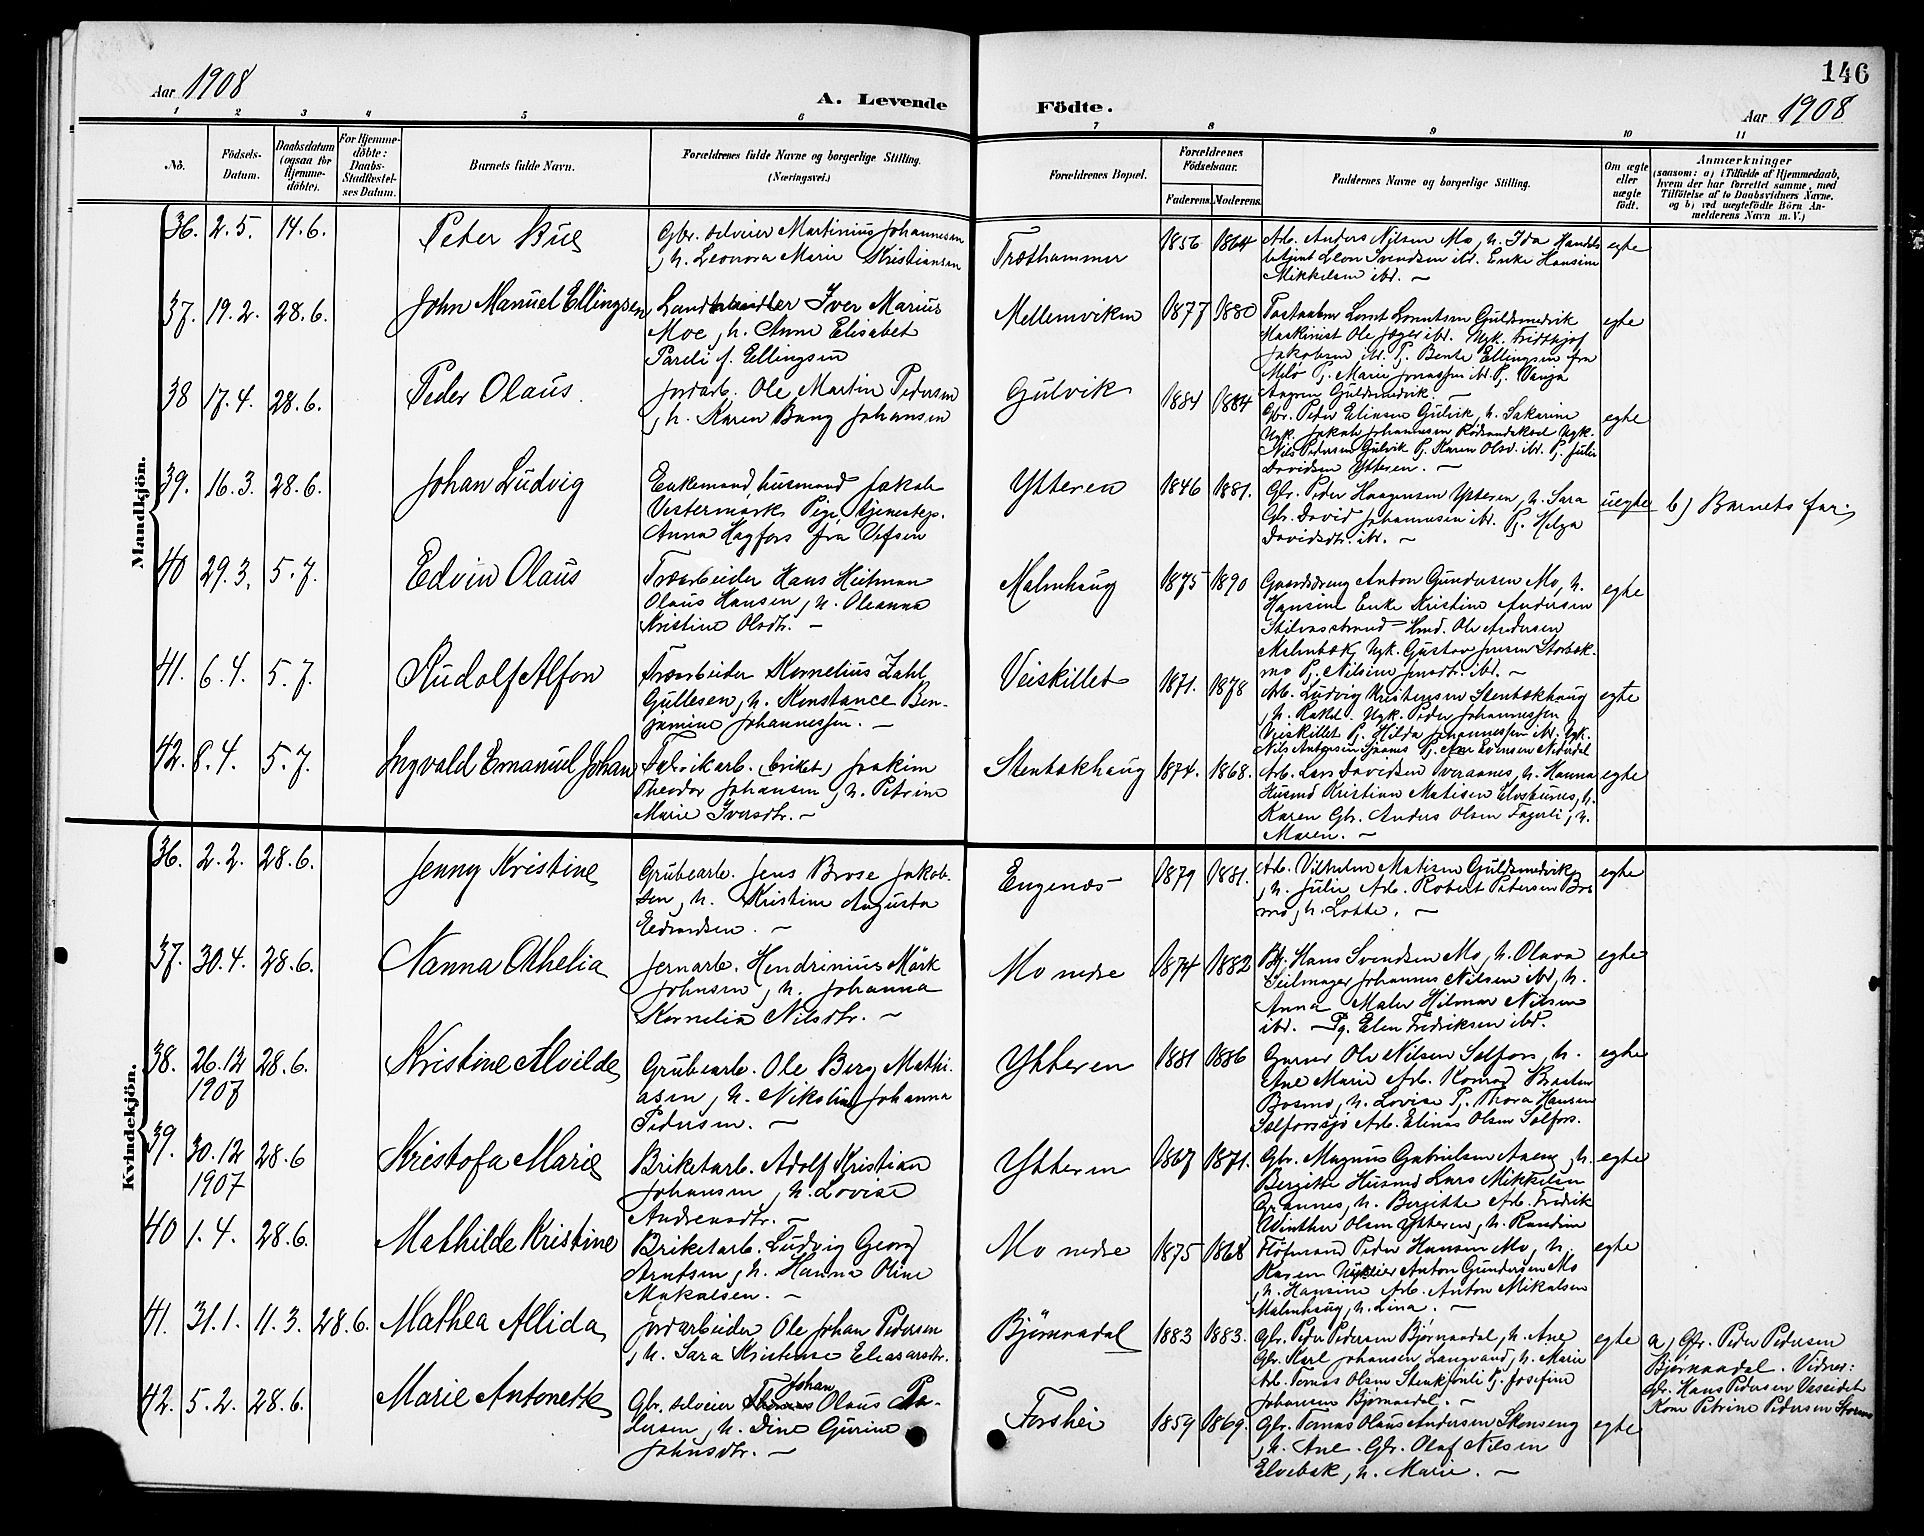 146
Aar 1908
A. Levende
Födte.
Aar 1908
1 2 3 4 5 6 7 8 9 10 11
Nö.
Födsels-Datum.
Daabsdatum (ogsaa for Hjemme-döbte).
For Hjemme-döbte: Daabs-Stadfæstel-ses Datum.
Barnets fulde Navn.
Forældrenes fulde Navne og borgerlige Stilling.
(Næringsvei.)
Forældrenes Bopæl.
Forældrenes Födselsaar.
Faderens. Moderens.
Faddernes Navne og borgerlige Stilling.
Om ægte eller uægte födt.
Anmærkninger
(saasom: a) i Tilfælde af Hjemmedaab,
hvem der har forrettet samme, med
Tilföielse af to Daabsvidners Navne.
og b) ved uægtefödte Börn An-
melderens Navn m. V.)
Mandkjön.
36. 2.5. 14.6. Peter Bue
Gbr. selveier Martinius Johannesen
, h. Leonora Marie Kristiansen
Træthammer 1856 1864
Arb. Anders Nilsen Mo, h. Ida Handels
betjent Leon Svendsen ibd. Enke Hansine
Mikkelsen ibd. —
egte
37. 19.2. 28.6. John Manuel Ellingsen
Landhandler Iver Marius
Moe, h. Anne Elisabet
Pareli f. Ellingsen
Mellemviken 1877 1880
Guldsmedvik
Maskinist Ole Jæger ibd. Ugk. Fridtjof
Jakobsen ibd. Pj. Bente Ellingsen fra
Melö Pj. Marie Jonassen ibd. Pj. Vanja
Guldsmedvik. —
egte
38 17.4. 28.6. Peder Olaus.
Jordarb. Ole Martin Pedersen
, h. Karen Bang Johansen
Gulvik 1884 1884
Gbr. Peder Eliasen Gulvik, h. Sakarine
Ugk. Jakob Johannesen Ugk.
Nils Pedersen Gulvik Pj. Karen Olsd. ibd. Pj. Julie
Davidsen Ytteren. —
egte
39. 16.3. 28.6. Johan Ludvig
Enkemand, husmand Jakob
Vestermark Pige, tjenestep.
Anna Hagfors fra Vefsen
Ytteren 1846 1881.
Gbr. Peder Haagensen Ytteren, h. Sara
Gbr. David Johannesen ibd. Pj. Helga
Davidsdtr. ibd. —
uegte
b) Barnets far.
40 29.3. 5.7. Edvin Olaus
Træarbeider Hans Heitman
Olaus Hansen, h. Oleanna
Kristine Olsdtr. —
Malmhaug 1875 1890
Gaardsdreng Anton Gundersen Mo, h.
Hansine Enke Kristine Andersen
Stilvasstrand Hmd. Ole Andersen
Malmbæk, Ugk. Gustav Jensen Storbæk-
mo Pj. Nilsine Jensdtr. ibd. —
egte
41. 6.4. 5.7. Rudolf Alfon
Træarbeider Kornelius Zahl
Gullesen, h. Konstance Ben-
jamine Johannessen. —
Veiskillet 1871. 1878
Arb. Ludvig Kristensen Stenbækhaug
, h. Rakel. Ugk. Peder Johannessen
Veiskillet Pj. Hilda Johannessen ibd. Ugk.
Nils Antonsen Pj. Evensen Nederdal
egte
42. 8.4. 5.7. Ingvald Emanuel Johan
Fabrikarb. (briket) Joakim
Theodor Johansen, h. Petrine
Marie Iversdtr. —
Stenbækhaug 1874. 1868.
Arb. Lars Davidsen Yveraanes, h. Hanna
Husmd Kristian Matisen, h.
Karen Gbr. Anders Olsen Fagerli, h.
Maren. —
egte
Kvindekjön.
36. 2.2. 28.6. Jenny Kristine
Grubearb. Jens Brose Jakob-
sen, h. Kristine Augusta
Edvardsen. —
Engenæs 1879 1881.
Arb. Vilhelm Matisen Guldsmedvik
, h. Julie Arb. Robert Petersen Bos
mo, h. Lotte. —
egte
37. 30.4. 28.6. Nanna Othelia
Jernarb. Hendrinius Mörk
Johnsen, h. Johanna
Kornelia Nilsdtr. —
Mo nedre 1874 1882
Bj. Hans Svendsen Mo, h. Olava
Seilmager Johannes Nilsen ibd, h.
Anna Maler Hilmar Nilsen
ibd. — Pg. Elen Fredriksen ibd.
egte
38. 26.12 1907 28.6. Kristine Alvilde
Grubearb. Ole Berg Mathi-
asen, h. Nikoline Johanna
Pedersen. —
Ytteren 1881 1886
Garver Ole Nilsen Selfors, h.
Ane Marie Arb. Konrad Braaten
Bosmo, h. Lovise Pj. Thora Hansen
Selforssjö Arb. Elinas Olsen Selfors.
egte
39. 30.12 1907 28.6 Kristofa Marie
Briketarb. Adolf Kristian
Johansen, h. Lovise
Andreasdtr. —
Ytteren 1867 1871.
Gbr. Magnus Gabrielsen Aaen, h.
Bergitte Husmd Lars Mikkelsen
Grannes, h. Bergitte Arb. Fredrik
Winther Olsen Ytteren, h. Randine
egte
40 1.4. 28.6. Mathilde Kristine
Briketarb. Ludvig Georg
Arntsen, h. Hanna Oline
Makalsen. —
Mo nedre 1875 1868
Flötmand Peder Hansen Mo, h.
Karen Anton Gundersen Mo
, h. Hansine Arb. Anton Mikalsen
Malmhaug, h. Lina. —
egte
41. 31.1. 11.3. 28.6. Mathea Allida
Jordarbeider Ole Johan Pedersen
, h. Sara Kristense Eleasarsdtr.
Bjørnaadal 1883 1883.
Gbr. Peder Pedersen Bjørnaadal, h. Ane
Gbr. Karl Johansen Langvand, h. Marie
Arb. Tomas Olsen Stenfjeldli Pj. Josefine
Johansen Bjørnaadal. —
egte
a, Gbr. Peder Pedersen
Bjørnaadal. Vidner:
Gbr. Hans Pedersen Veseidet
Kone Petrine Pedersen
42. 5.2. 28.6. Marie Antonette
Johan
Gbr. selveier Thomas Olaus Pe-
dersen, h. Dine Gurine
Johnsdtr. —
Forshei 1859 1869.
Gbr. Tomas Olaus Andersen Skonseng
, h. Ane. Gbr. Olaf Nilsen
Elvebak, h. Marie. —
egte